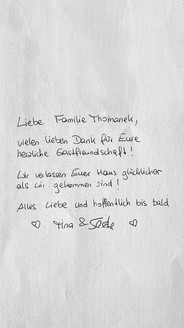 Liebe Familie Thomanek,
vielen lieben Dank für Eure
herzliche Gastfreundschaft!
Wir verlassen Euer Haus glücklicher
als wir gekommen sind!
Alles Liebe und hoffentlich bis bald
♡ Tina & ♡